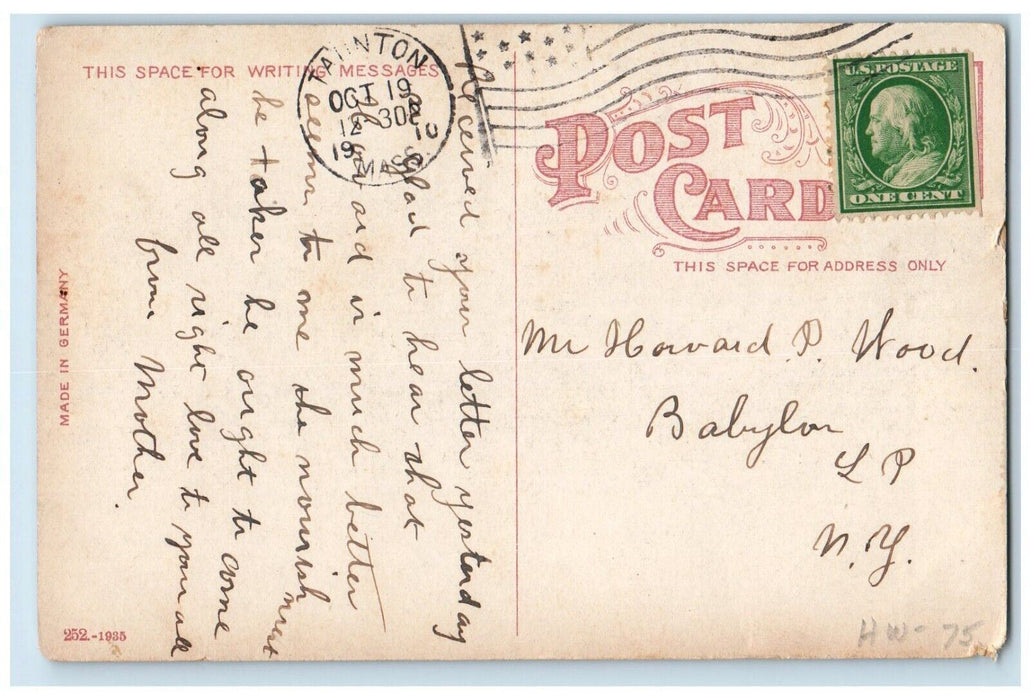 THIS SPACE FOR WRITING MESSAGES
TAUNTON
OCT 19
12 30P
1910
MASS.
U.S. POSTAGE
ONE CENT
POST
CARD
THIS SPACE FOR ADDRESS ONLY
Received your letter yesterday
glad to hear that
and is much better
seem to me the nourishment
he taken he ought to come
along all right love to you all
from Mother.
Mr Howard P. Wood.
Babylon
L P
N.Y.
MADE IN GERMANY
252.-1935
HW-75